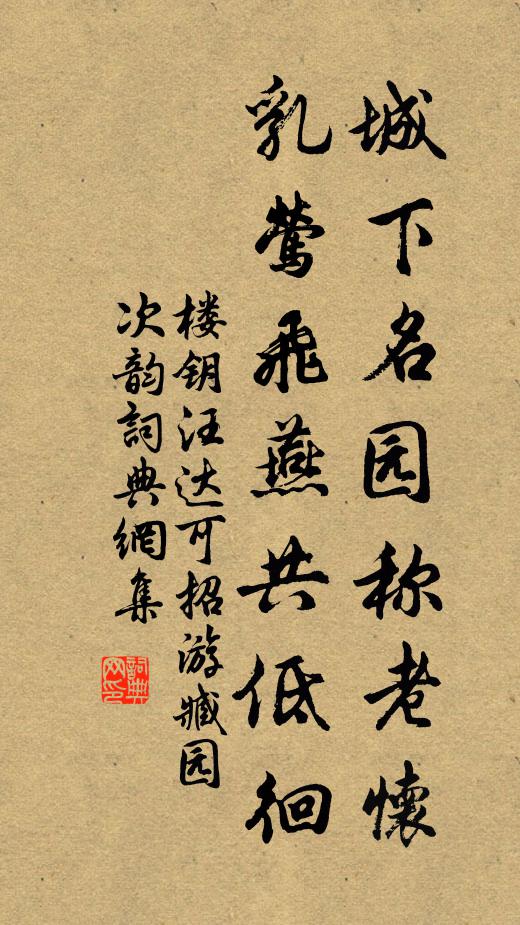 城下名园称老懷
乳鶯飛燕共低徊
楼钥汪达可招游臧园
次韵詞典網集
詞典网印